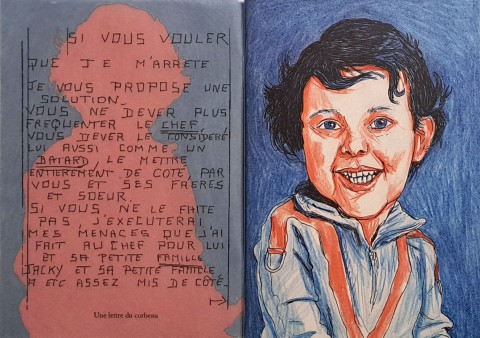 SI VOUS VOULER
QUE JE M'ARRETE
JE VOUS PROPOSE UNE
SOLUTION_
VOUS NE DEVER PLUS
FREQUENTER LE CHEF.
VOUS DEVER LE CONSIDERE
LUI AUSSI COMME UN
BATARD, LE METTRE
ENTIEREMENT DE COTE PAR
VOUS ET SES FRERES
ET SOEUR.
SI VOUS NE LE FAITE
PAS J'EXECUTERAI
MES MENACES QUE J'AI
FAIT AU CHEF POUR LUI
ET SA PETITE FAMILLE
JACKY ET SA PETITE FAMILLE
A ETE ASSEZ MIS DE COTE_
Une lettre du corbeau